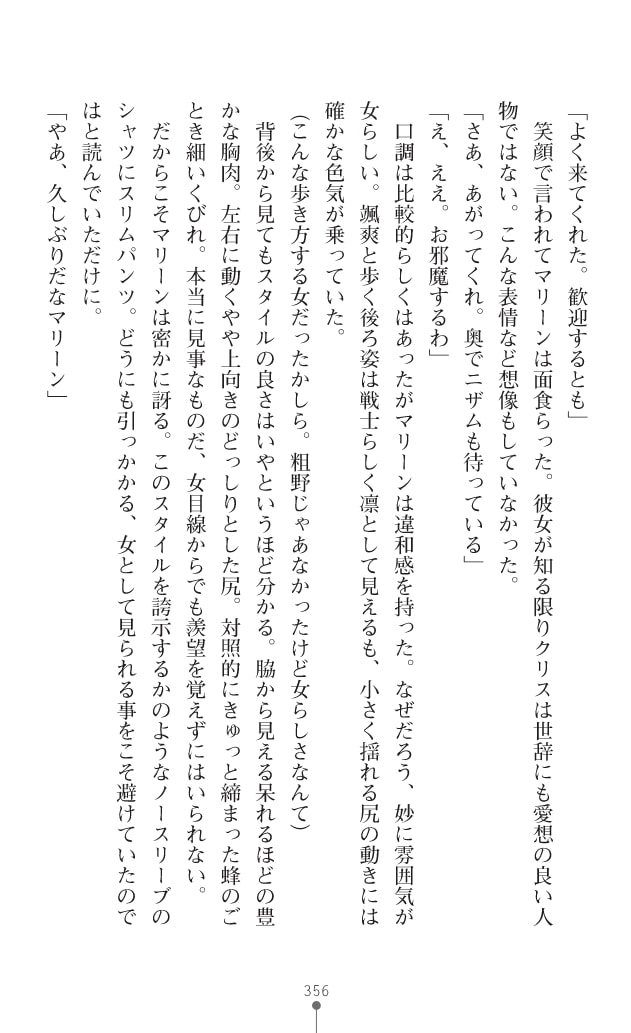 「よく来てくれた。歓迎するとも」
　笑顔で言われてマリーンは面食らった。彼女が知る限りクリスは世辞にも愛想の良い人
物ではない。こんな表情など想像もしていなかった。
「さあ、あがってくれ。奥でニザムも待っている」
「え、ええ。お邪魔するわ」
　口調は比較的らしくはあったがマリーンは違和感を持った。なぜだろう、妙に雰囲気が
女らしい。颯爽と歩く後ろ姿は戦士らしく凛として見えるも、小さく揺れる尻の動きには
確かな色気が乗っていた。
（こんな歩き方する女だったかしら。粗野じゃあなかったけど女らしさなんて）
　背後から見てもスタイルの良さはいやというほど分かる。脇から見える呆れるほどの豊
かな胸肉。左右に動くやや上向きのどっしりとした尻。対照的にきゅっと締まった蜂のご
とき細いくびれ。本当に見事なものだ、女目線からでも羨望を覚えずにはいられない。
　だからこそマリーンは密かに訝る。このスタイルを誇示するかのようなノースリーブの
シャツにスリムパンツ。どうにも引っかかる、女として見られる事をこそ避けていたので
はと読んでいただけに。
「やあ、久しぶりだなマリーン」
356